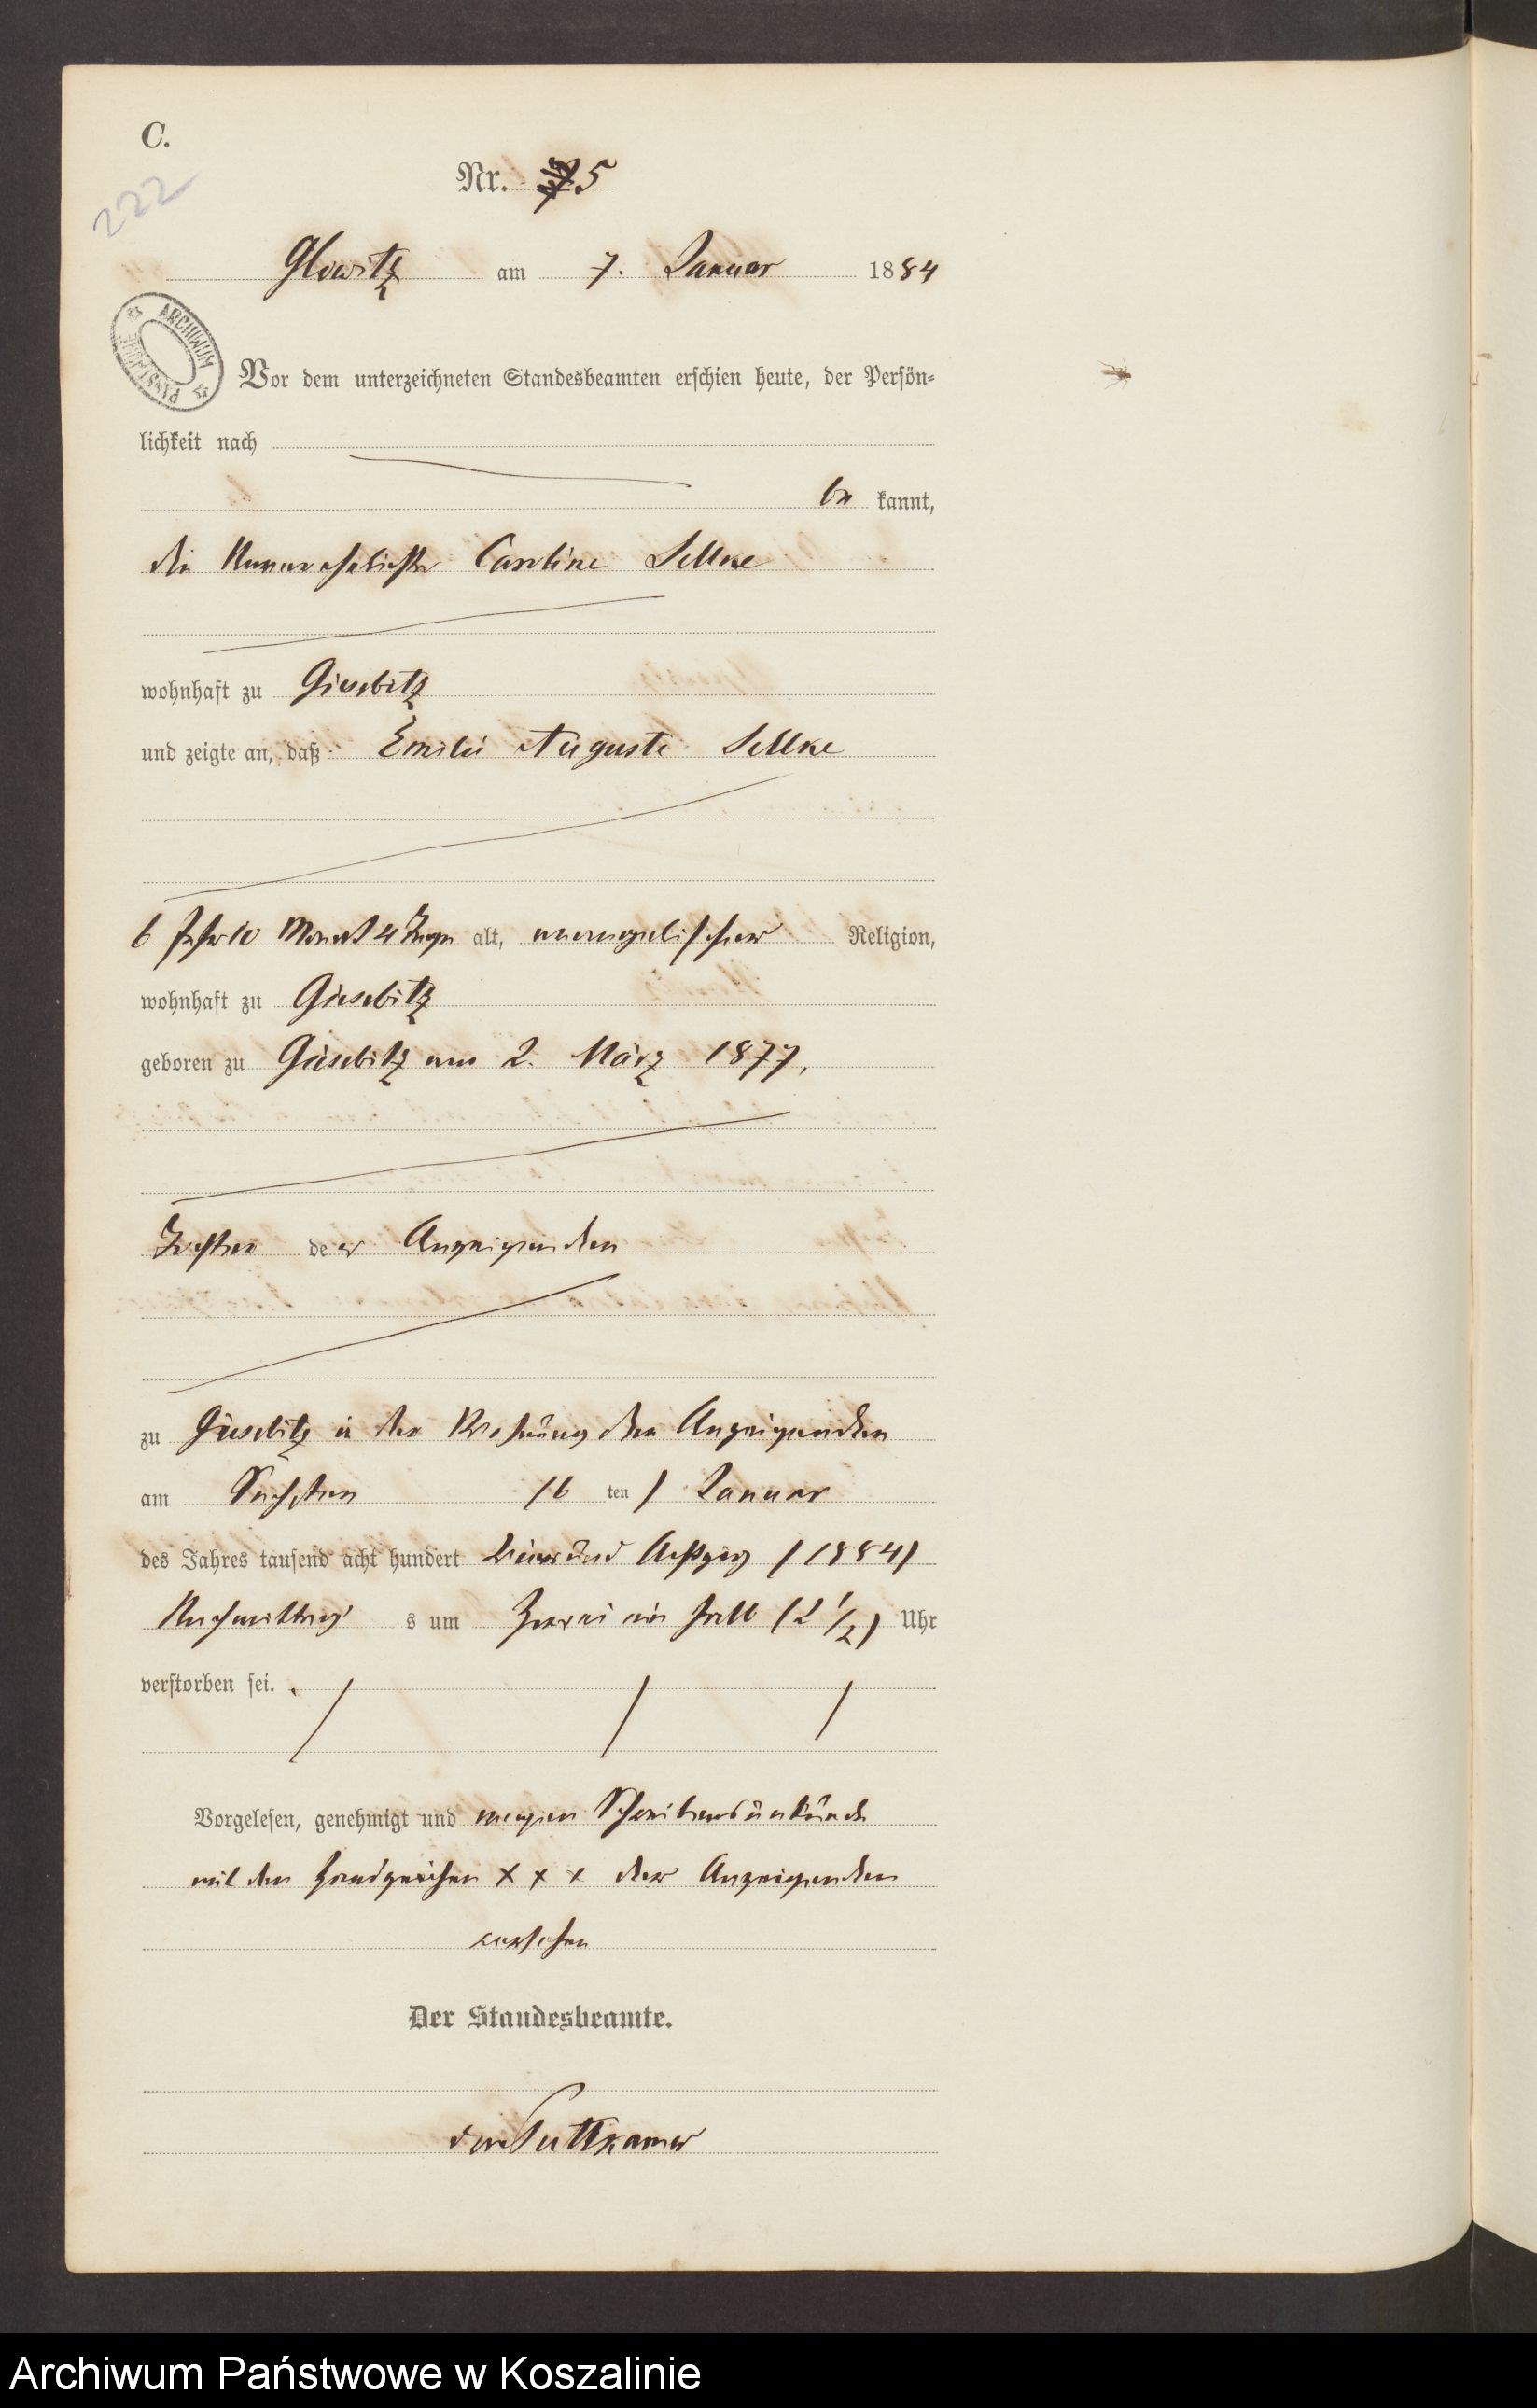 C.
222
Nr. 5
Glowitz am 7. Januar 1884
ARCHIWUM PAŃSTWOWE
Vor dem unterzeichneten Standesbeamten erschien heute, der Persön-
lichkeit nach
be kannt,
die Unverehelichte Caroline Sellke
wohnhaft zu Giesebitz
und zeigte an, daß Emilie Auguste Sellke
6 Jahr 10 Monat 4 Tage alt, evangelischer Religion,
wohnhaft zu Giesebitz
geboren zu Giesebitz am 2. März 1877,
Tochter der Anzeigenden
zu Giesebitz in der Wohnung der Anzeigenden
am Sechsten (6 ten) Januar
des Jahres tausend acht hundert vierund Achtzig (1884)
Nachmittag s um Zwei ein halb (2 1/2) Uhr
verstorben sei.
Vorgelesen, genehmigt und wegen Schreibensunkunde
mit den Handzeichen x x x der Anzeigenden
versehen
Der Standesbeamte.
von Puttkamer
Archiwum Państwowe w Koszalinie